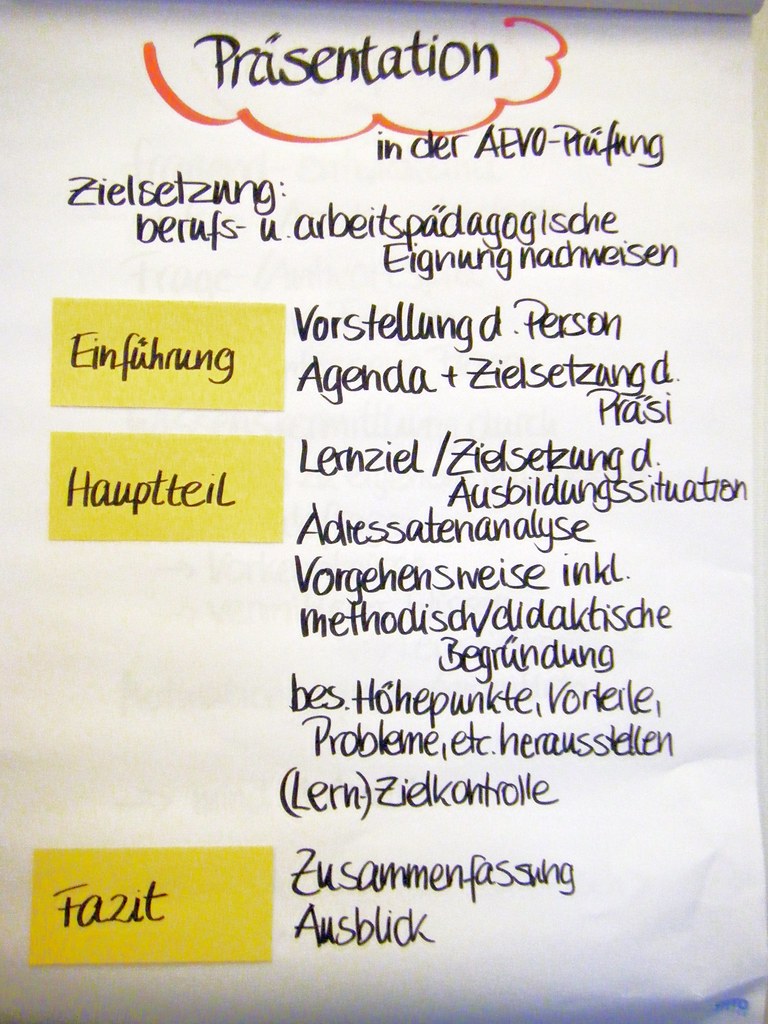 Präsentation
in der AEVO-Prüfung
Zielsetzung:
berufs- u. arbeitspädagogische
Eignung nachweisen
Einführung
Vorstellung d. Person
Agenda + Zielsetzung d.
Präsi
Hauptteil
Lernziel / Zielsetzung d.
Ausbildungssituation
Adressatenanalyse
Vorgehensweise inkl.
methodisch/didaktische
Begründung
bes. Höhepunkte, Vorteile,
Probleme, etc. herausstellen
(Lern-) Zielkontrolle
Fazit
Zusammenfassung
Ausblick